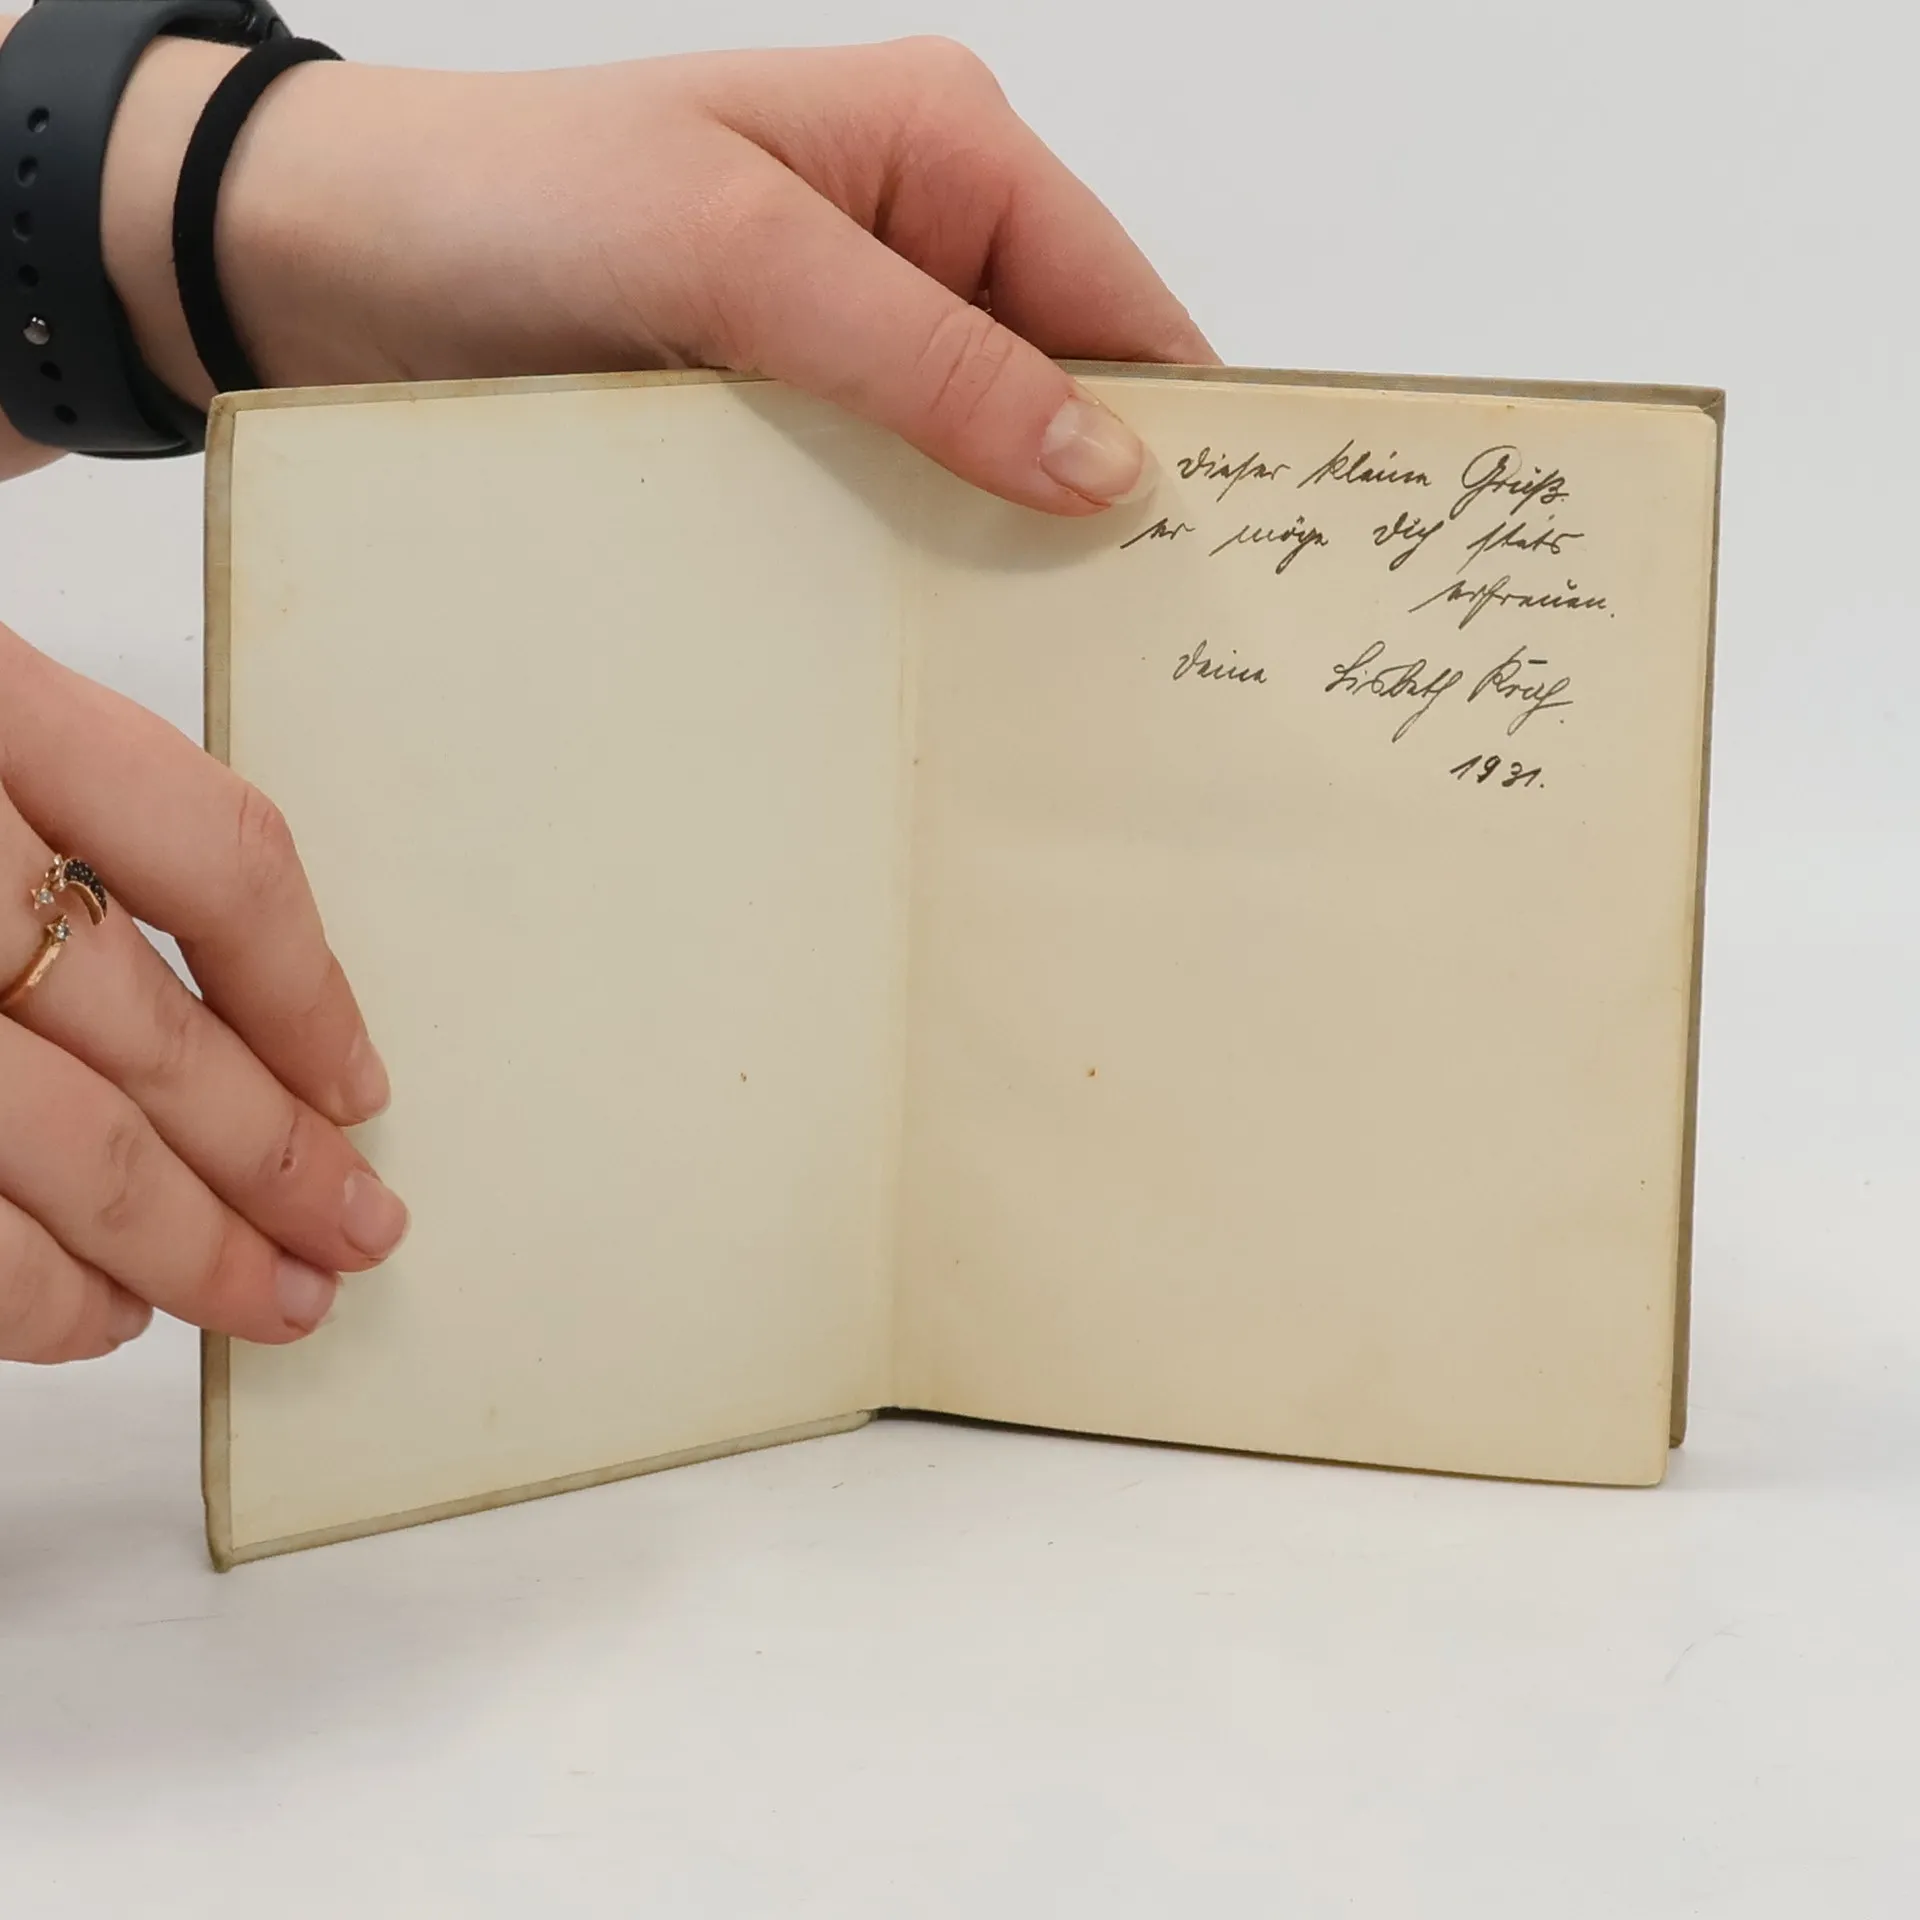 Dieser kleine Gruß.
er möge Dich stets
erfreuen.
Deine Lisbeth
1931.